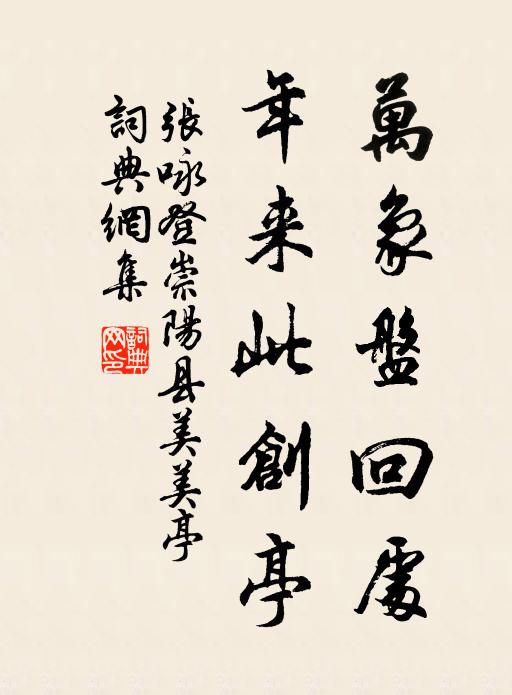 萬象盤回處
年来此創亭
張咏登崇陽县美美亭
詞典網集
詞典网印